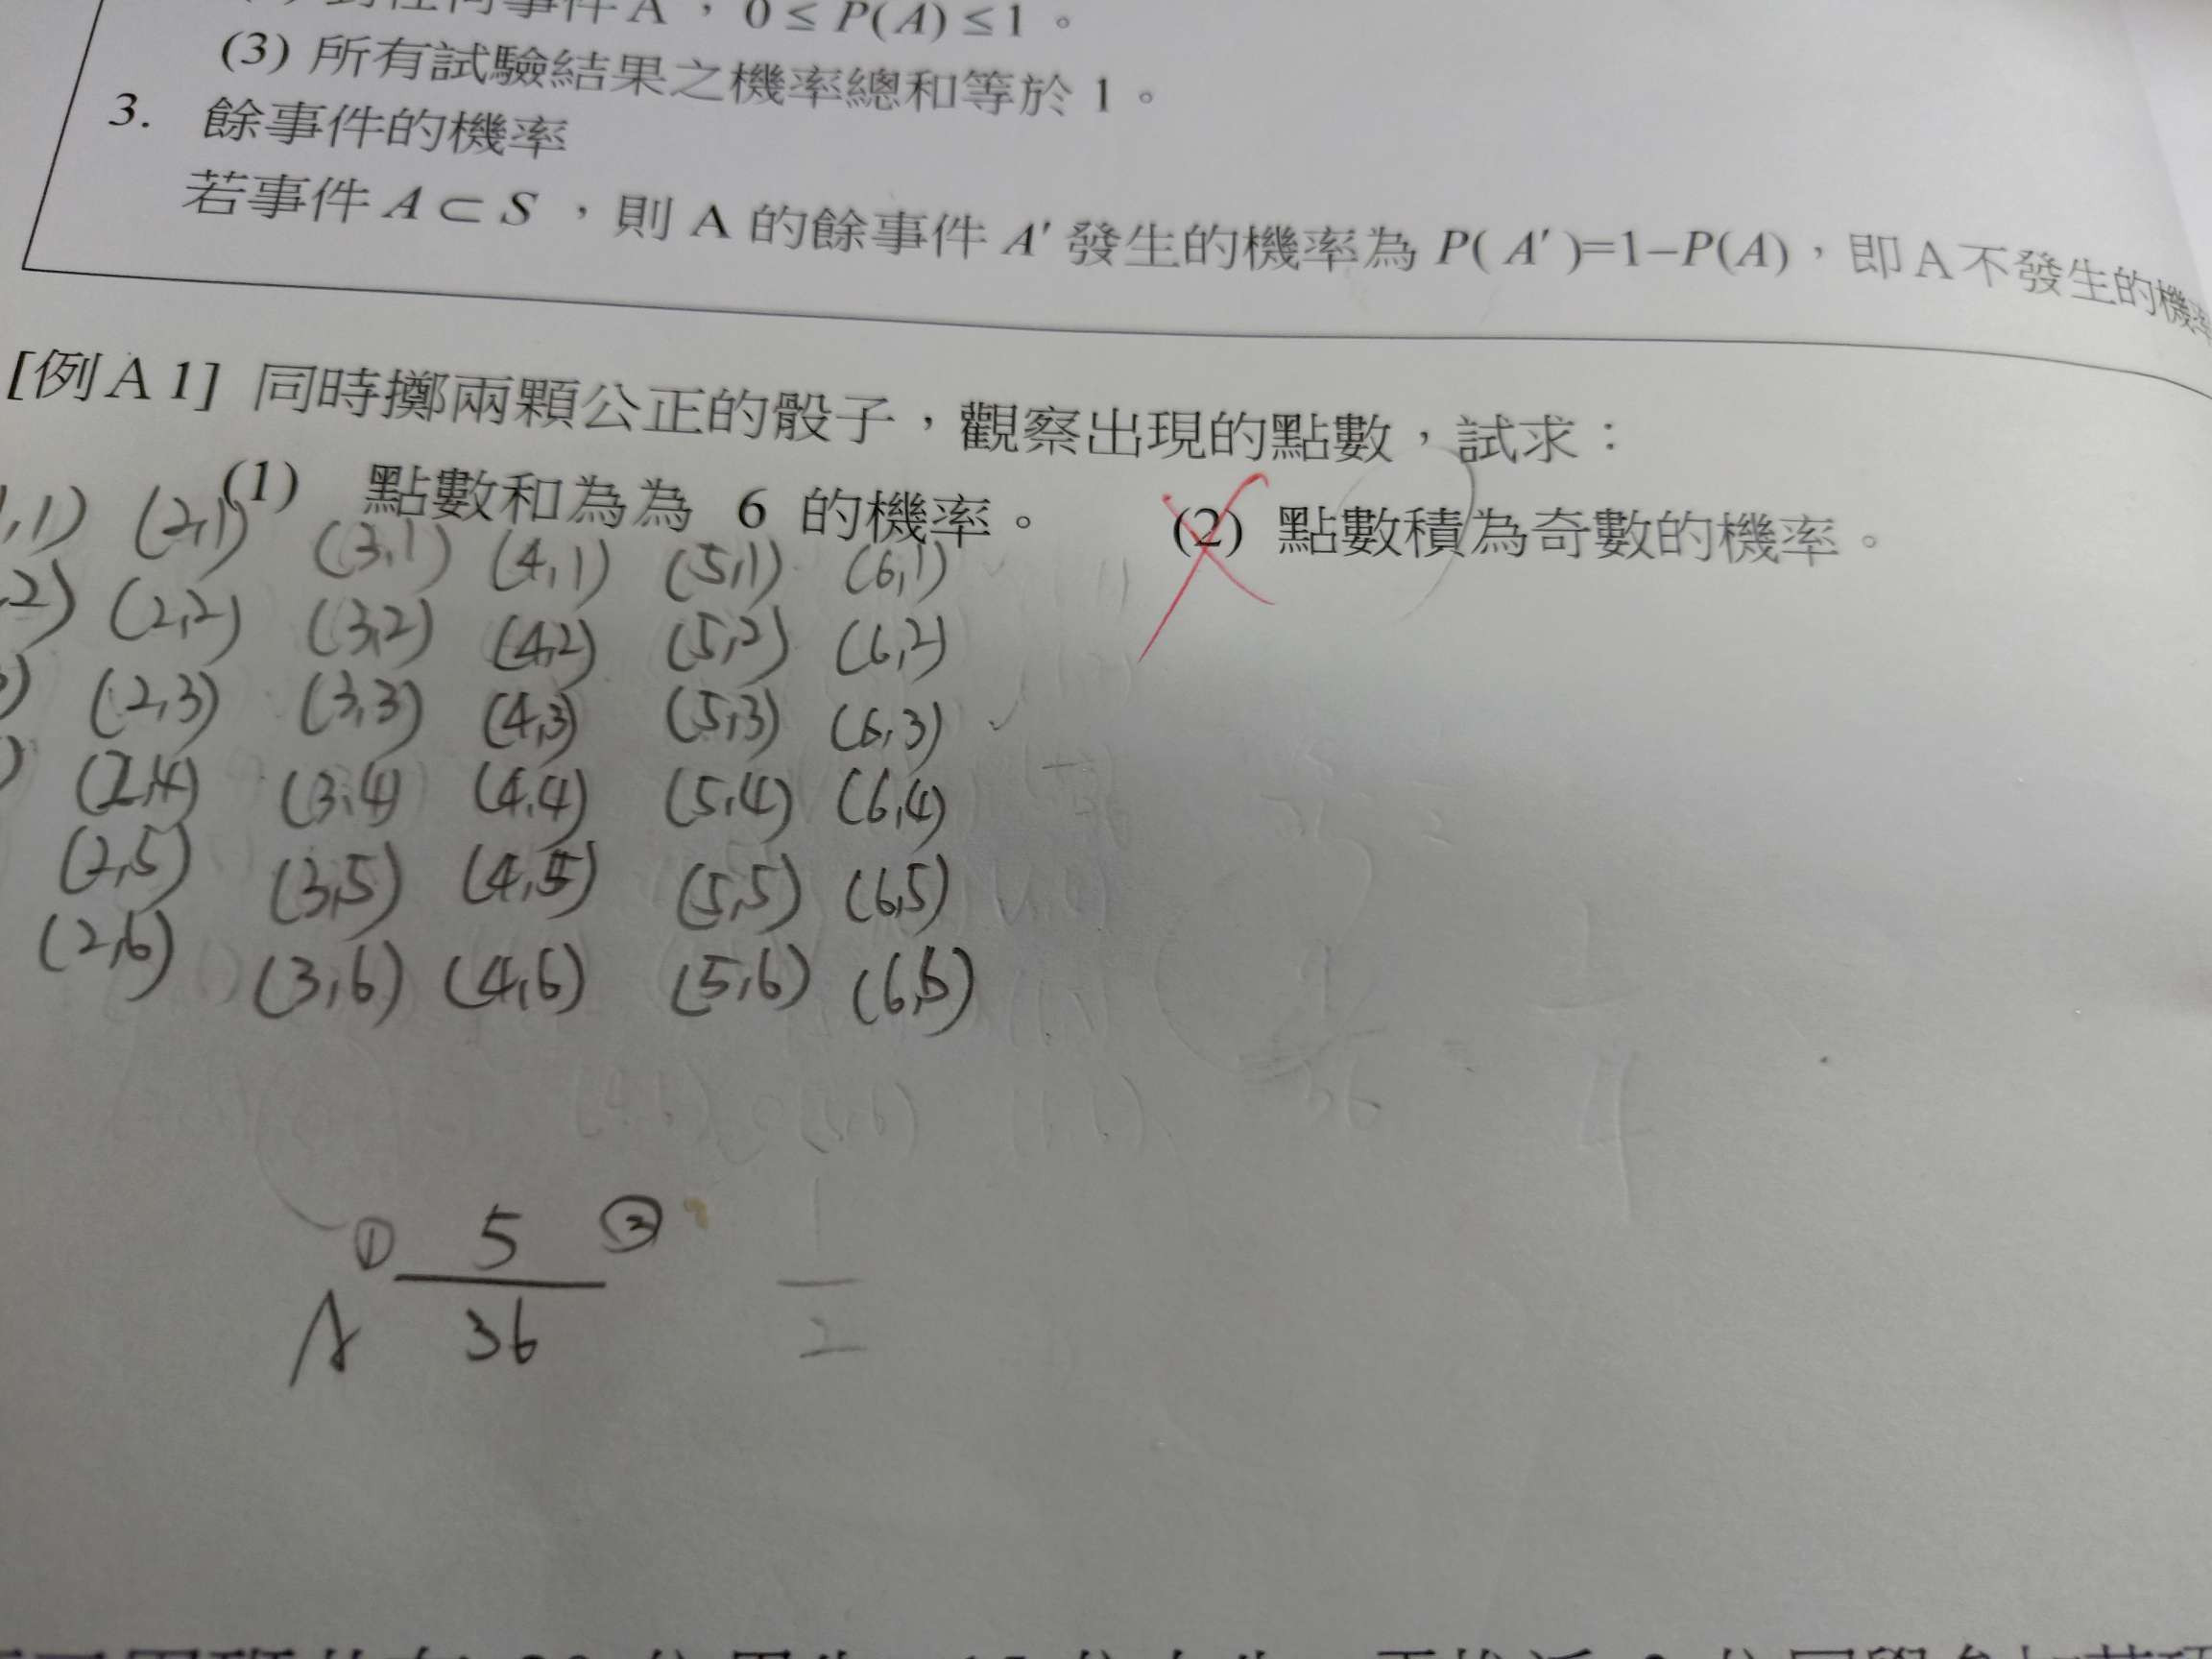 對任何事件 A,0 ≤ P(A) ≤ 1。
(3) 所有試驗結果之機率總和等於 1。
3. 餘事件的機率
若事件 A ⊂ S,則 A 的餘事件 A′ 發生的機率為 P( A′ )=1−P(A),即 A 不發生的機率
[例 A 1] 同時擲兩顆公正的骰子,觀察出現的點數,試求:
(1) 點數和為為 6 的機率。 (2) 點數積為奇數的機率。
,1) (2,1) (3,1) (4,1) (5,1) (6,1)
,2) (2,2) (3,2) (4,2) (5,2) (6,2)
) (2,3) (3,3) (4,3) (5,3) (6,3)
) (2,4) (3,4) (4,4) (5,4) (6,4)
(2,5) (3,5) (4,5) (5,5) (6,5)
(2,6) (3,6) (4,6) (5,6) (6,6)
① 5 ② 1
A 36 2